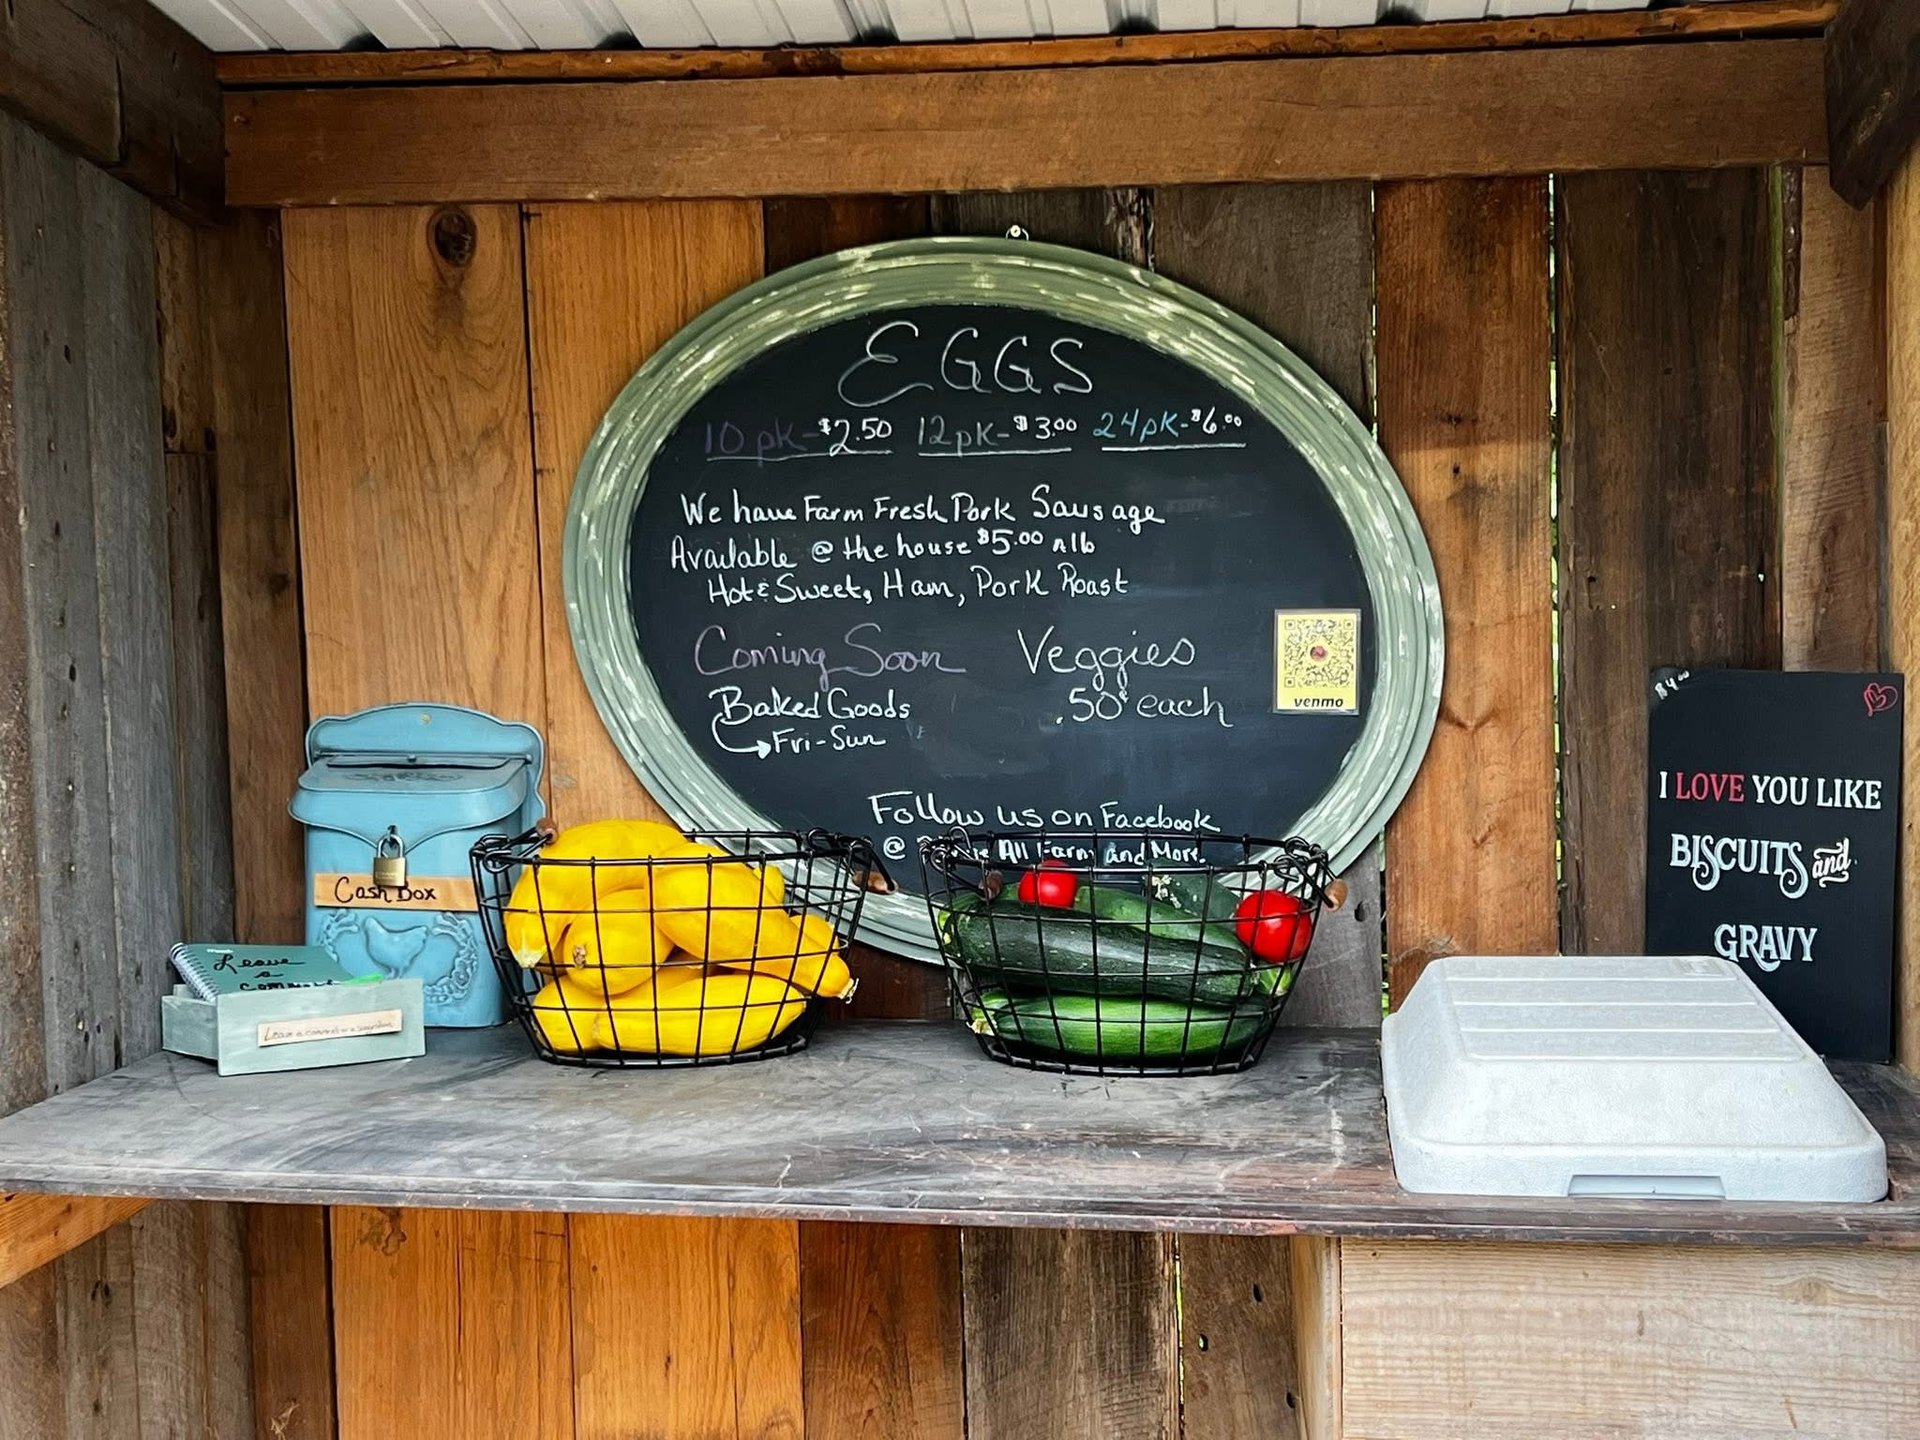 EGGS
10 pk - $2.50 12pk - $3.00 24pk - $6.00
We have Farm Fresh Pork Sausage
Available @ the house $5.00 a lb
Hot & Sweet, Ham, Pork Roast
Coming Soon
Baked Goods
Fri - Sun
Veggies
.50¢ each
venmo
Follow us on Facebook
@ All Farm and More
Cash Box
Leave
a
comment
Leave a comment
$4.00
I LOVE YOU LIKE
BISCUITS and
GRAVY